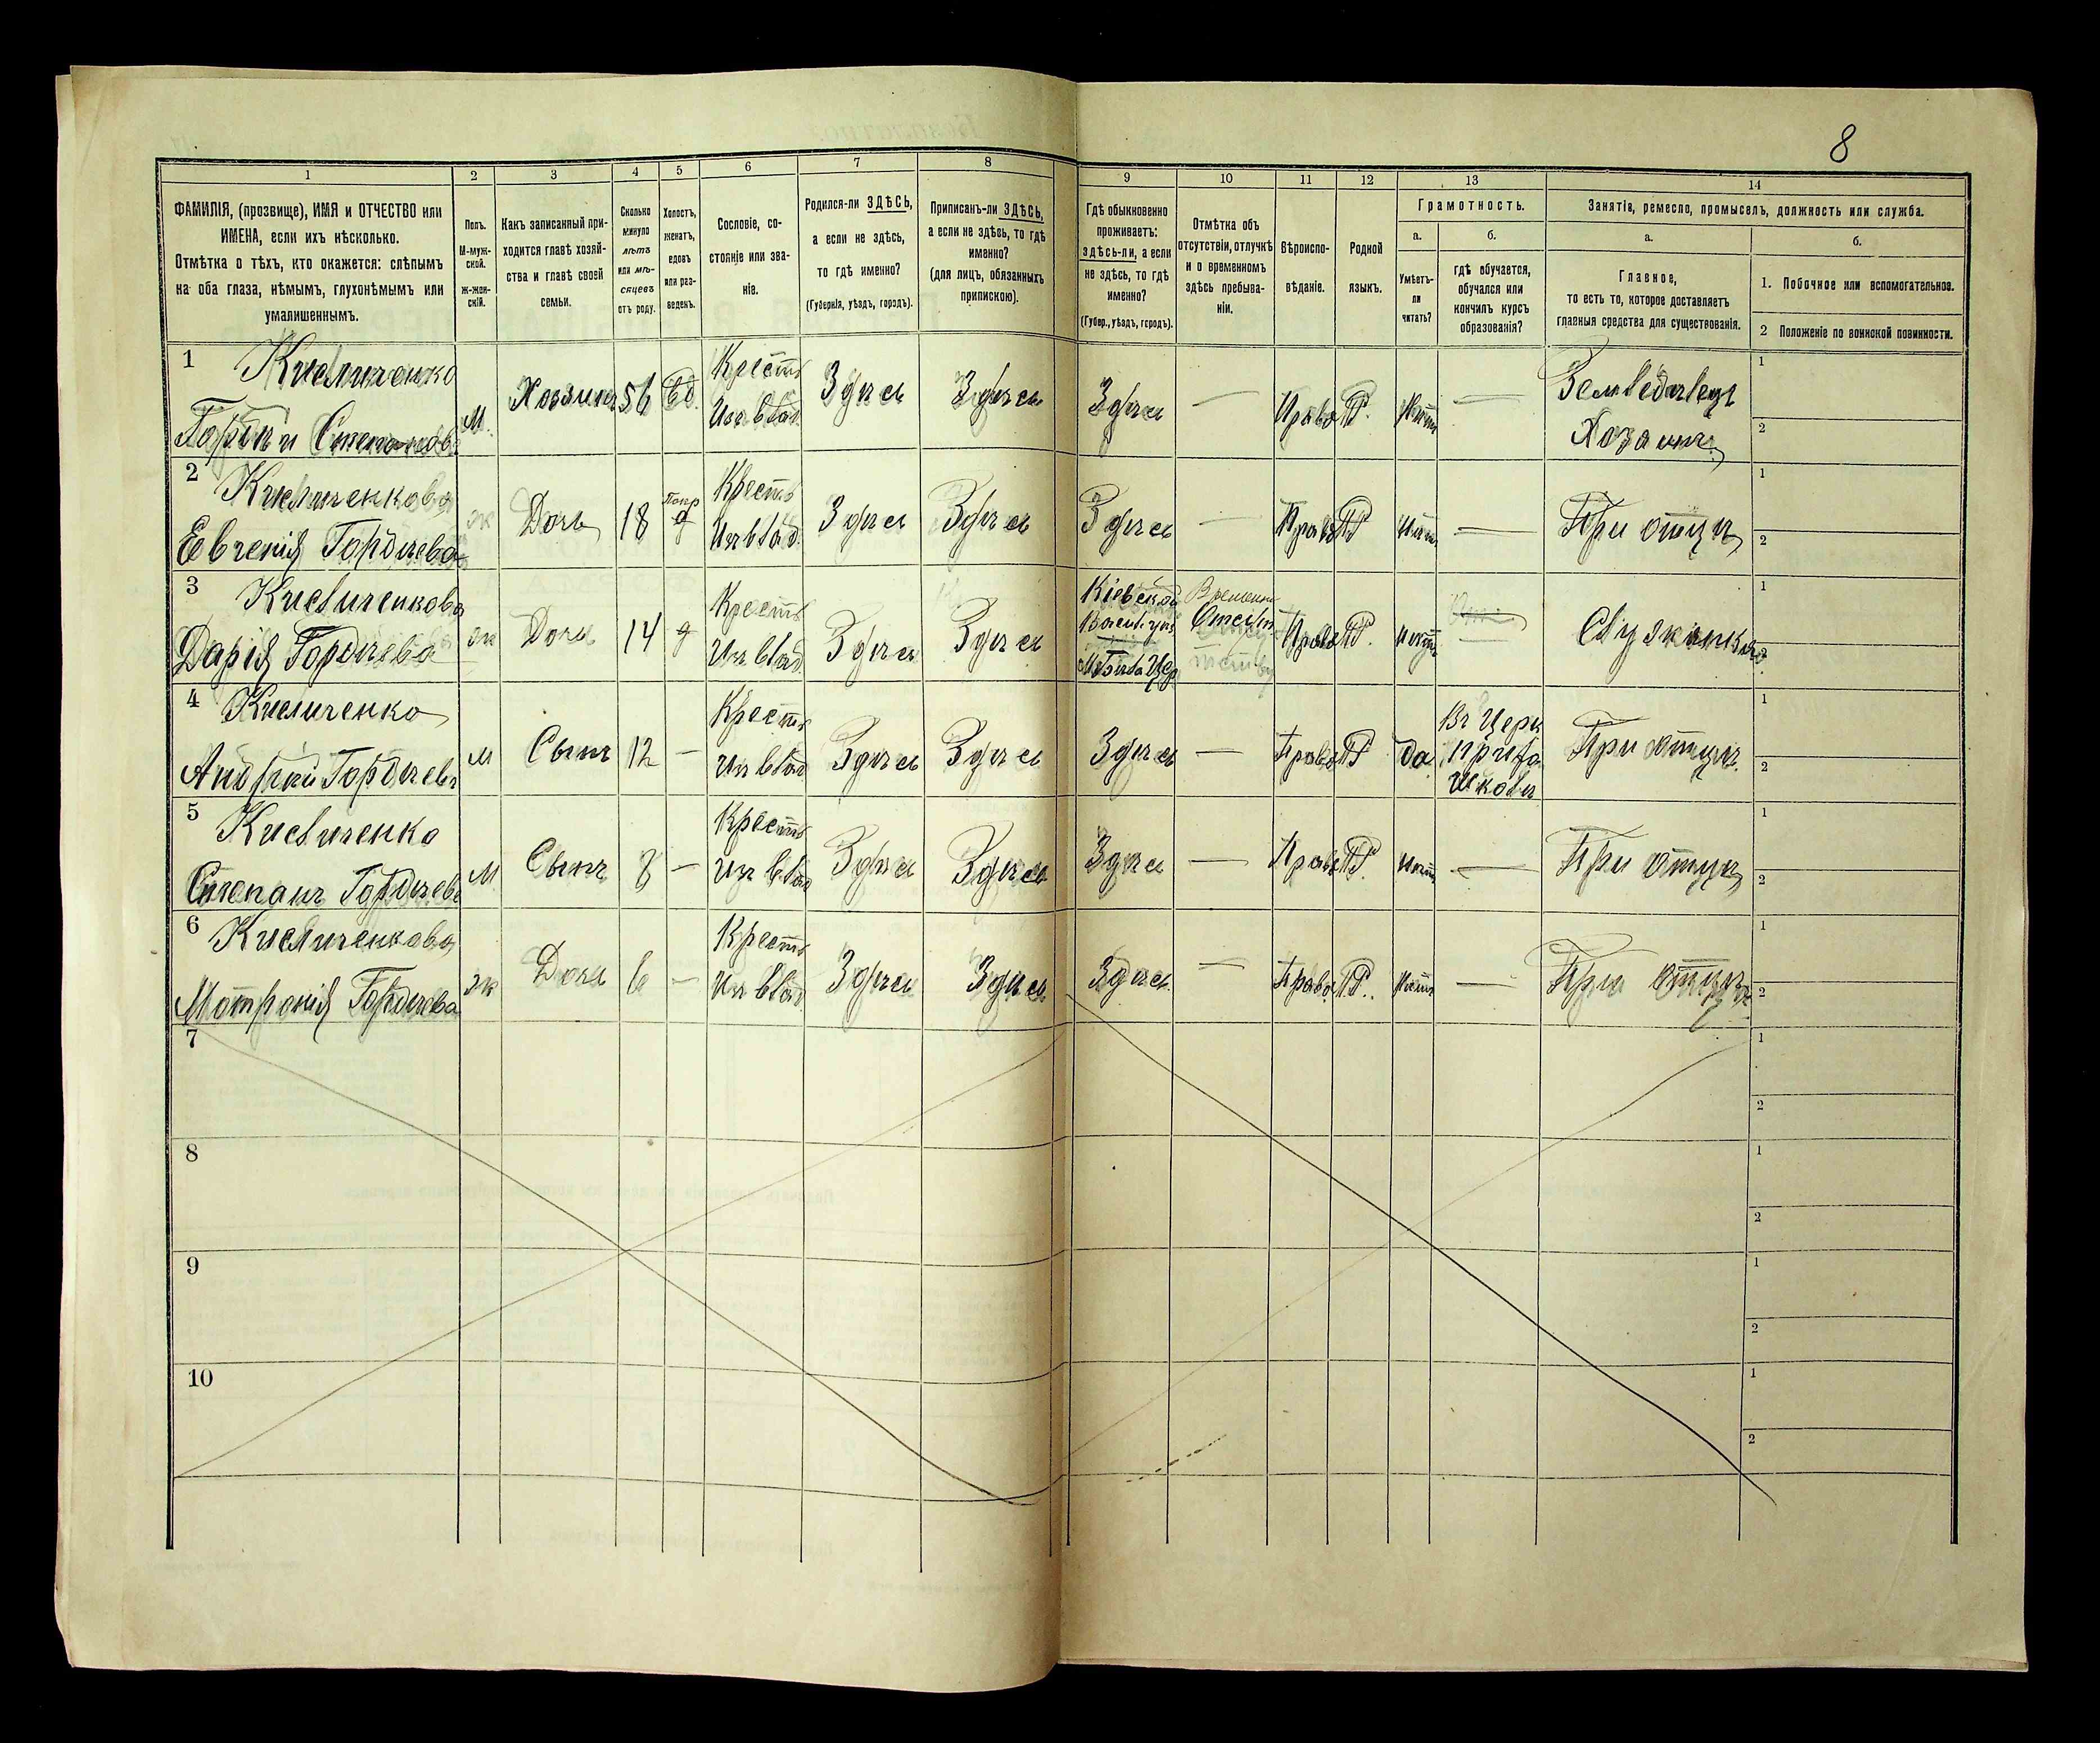 8
1 2 3 4 5 6 7 8 9 10 11 12 13 14
ФАМИЛІЯ, (прозвище), ИМЯ и ОТЧЕСТВО или
ИМЕНА, если ихъ нѣсколько.
Отмѣтка о тѣхъ, кто окажется: слѣпымъ
на оба глаза, нѣмымъ, глухонѣмымъ или
умалишеннымъ.
Полъ.
М-муж-
ской.
ж-жен-
скій.
Какъ записанный при-
ходится главѣ хозяй-
ства и главѣ своей
семьи.
Сколько
минуло
лѣтъ
или мѣ-
сяцевъ
отъ роду.
Холостъ,
женатъ,
вдовъ
или раз-
веденъ.
Сословіе, со-
стояніе или зва-
ніе.
Родился-ли ЗДѢСЬ,
а если не здѣсь,
то гдѣ именно?
(Губернія, уѣздъ, городъ).
Приписанъ-ли ЗДѢСЬ,
а если не здѣсь, то гдѣ
именно?
(для лицъ, обязанныхъ
припискою).
Гдѣ обыкновенно
проживаетъ:
ЗДѢСЬ-ли, а если
не здѣсь, то гдѣ
именно?
(Губер., уѣздъ, городъ).
Отмѣтка объ
отсутствіи, отлучкѣ
и о временномъ
здѣсь пребыва-
ніи.
Вѣроиспо-
вѣданіе.
Родной
языкъ.
Грамотность.
а.
Умѣетъ-
ли
читать?
б.
гдѣ обучается,
обучался или
кончилъ курсъ
образованія?
Занятія, ремесло, промыселъ, должность или служба.
а.
Главное,
то есть то, которое доставляетъ
главныя средства для существованія.
б.
1. Побочное или вспомогательное.
2 Положеніе по воинской повинности.
1 Кисличенко
Гордѣй Степановъ
М. Хозяинъ 56 Вд.
Крестъ
Изъ влад.
Здѣсь Здѣсь Здѣсь — Право Р. Нѣтъ —
Земледѣлецъ
Хозяинъ
1
2
2 Кисличенкова
Евгенія Гордѣева
ж Дочь 18 д
Крестъ
Изъ влад.
Здѣсь Здѣсь Здѣсь — Право Р Нѣтъ —
При отцѣ
1
2
3 Кисличенкова
Дарія Гордѣева
ж Дочь 14 д
Крестъ
Изъ влад.
Здѣсь Здѣсь
Кіевской
Василь. уѣз
Временно
Отсут.
Право Р. Нѣтъ
Служанка
1
2
4 Кисличенко
Андрей Гордѣевъ
М Сынъ 12 —
Крестъ
Изъ влад
Здѣсь Здѣсь Здѣсь — Право Р да
Въ Церк
Прихо
Школѣ
При отцѣ.
1
2
5 Кисличенко
Степанъ Гордѣевъ
М. Сынъ 8 —
Крестъ
Изъ влад
Здѣсь Здѣсь Здѣсь — Право Р. Нѣтъ —
При отцѣ
1
2
6 Кисличенкова
Матронія Гордѣева
ж Дочь 6 —
Крестъ
Изъ влад.
Здѣсь Здѣсь Здѣсь. — Право Р. Нѣтъ —
При отцѣ
1
2
7
1
2
8
1
2
9
1
2
10
1
2